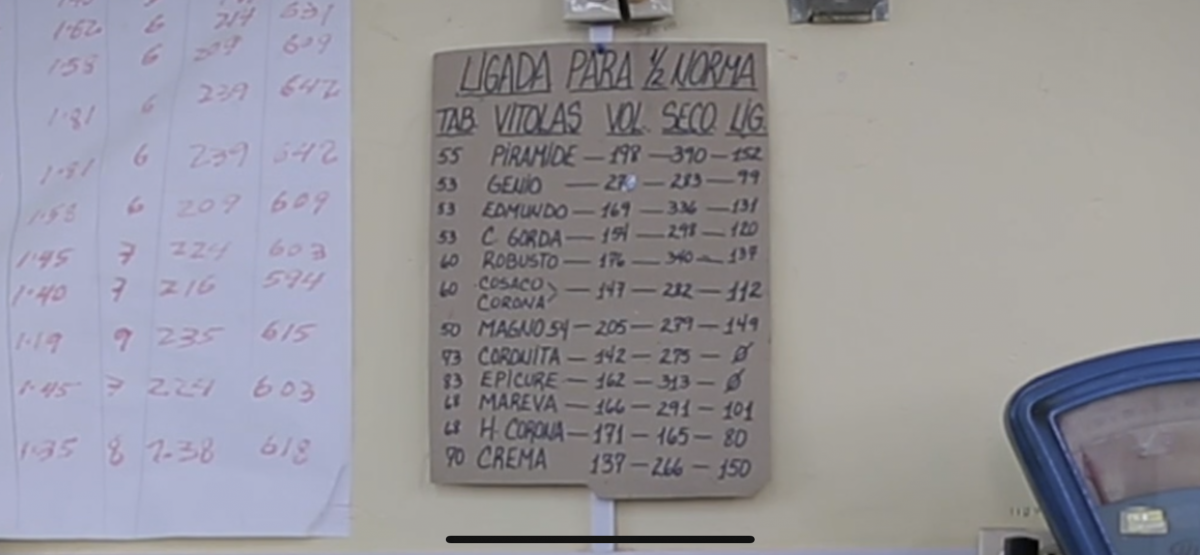 631
1.62 6 217
1.58 6 209 609
1.81 6 239 642
1.81 6 239 642
1.58 6 209 609
1.45 7 224 603
1.40 7 216 594
1.19 9 235 615
1.45 7 224 603
1.35 8 238 618
LIGADA PARA 1/2 NORMA
TAB. VITOLAS VOL. SECO LIG.
55 PIRAMIDE — 198 — 390 — 152
53 GENIO — — 283 — 99
53 EDMUNDO — 169 — 336 — 131
53 C. GORDA — 154 — 298 — 120
60 ROBUSTO — 176 — 340 — 137
60 COSACO > — 147 — 282 — 112
CORONA
50 MAGNO 54 — 205 — 279 — 149
93 COROUITA — 142 — 275 — Ø
83 EPICURE — 162 — 313 — Ø
68 MAREVA — 166 — 291 — 101
68 H. CORONA — 171 — 165 — 80
90 CREMA 137 — 266 — 150